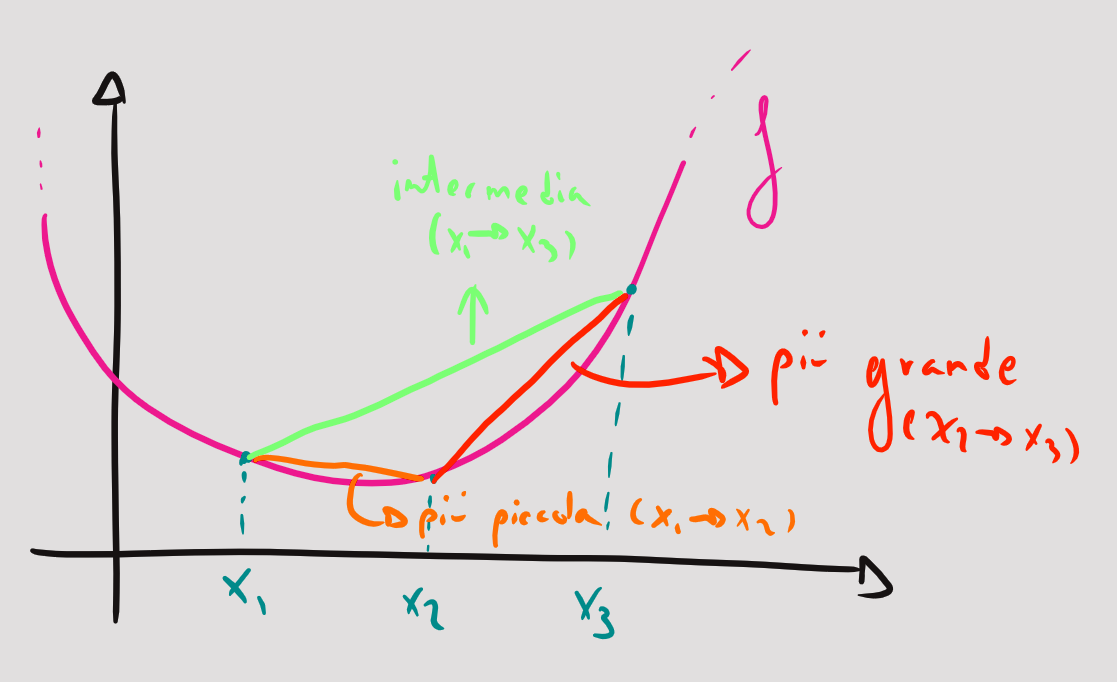 f
intermedia
(x₁→x₃)
più grande
(x₂→x₃)
più piccola (x₁→x₂)
x₁
x₂
x₃